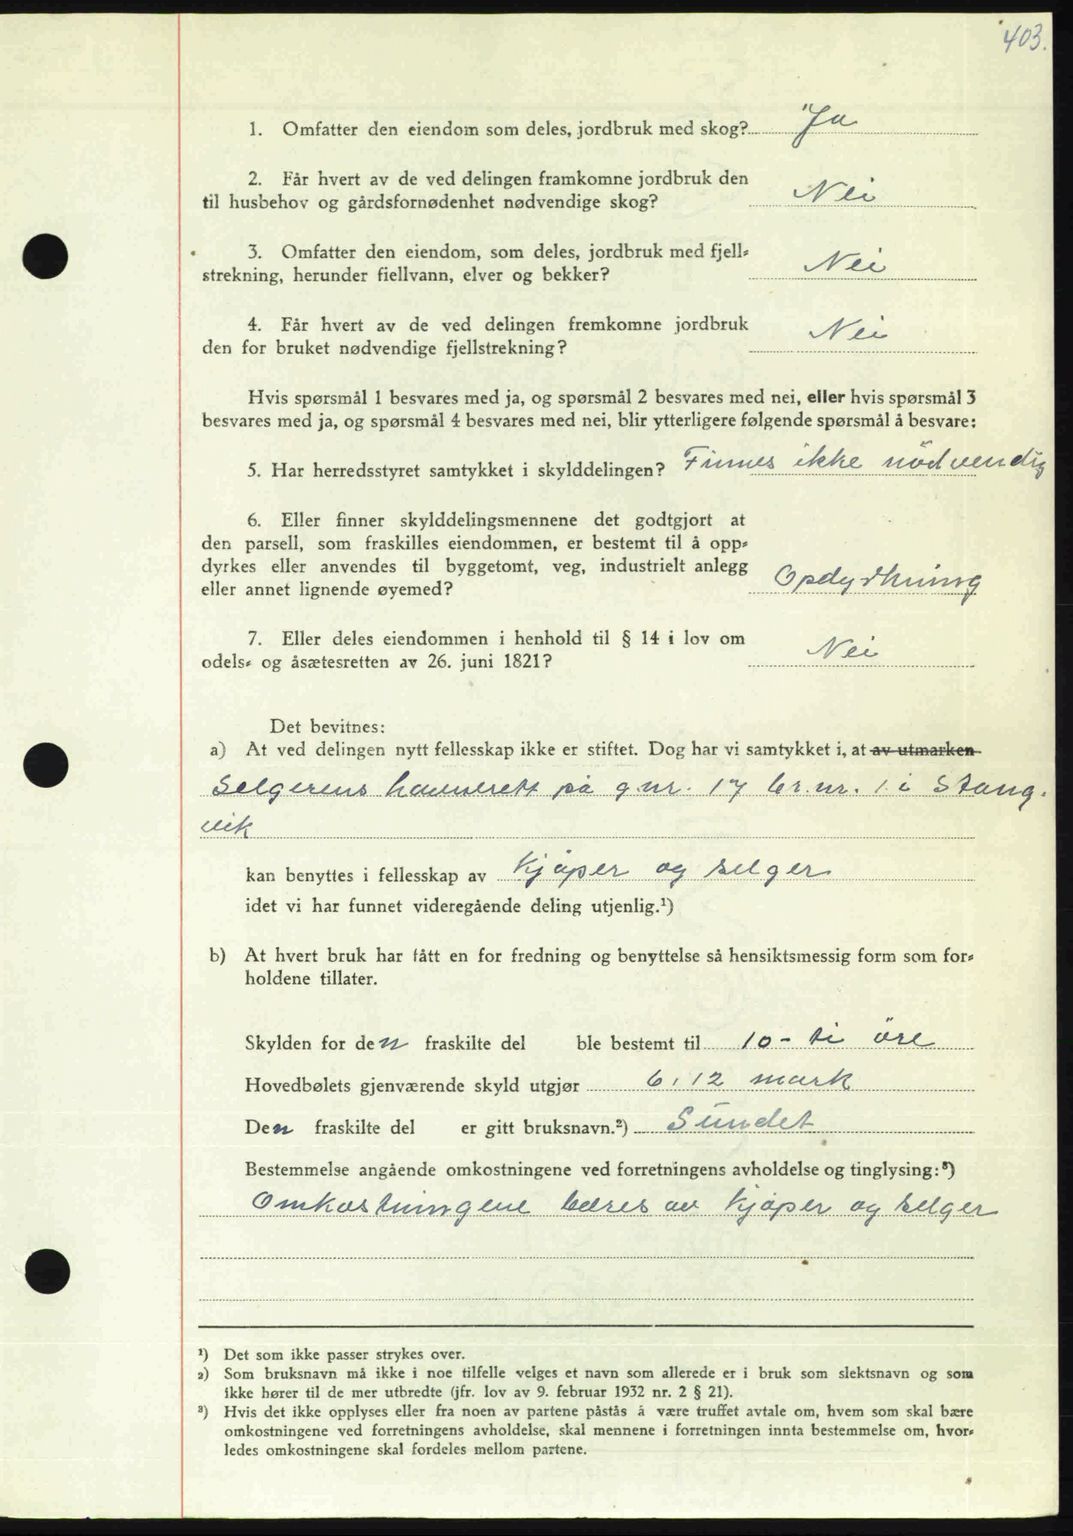 403.
1. Omfatter den eiendom som deles, jordbruk med skog? Ja
2. Får hvert av de ved delingen framkomne jordbruk den
til husbehov og gårdsfornødenhet nødvendige skog? Nei
3. Omfatter den eiendom, som deles, jordbruk med fjell-
strekning, herunder fiellvann, elver og bekker? Nei
4. Får hvert av de ved delingen fremkomne jordbruk
den for bruket nødvendige fjellstrekning? Nei
Hvis spørsmål 1 besvares med ja, og spørsmål 2 besvares med nei, eller hvis spørsmål 3
besvares med ja, og spørsmål 4 besvares med nei, blir ytterligere følgende spørsmål å besvare:
5. Har herredsstyret samtykket i skylddelingen? Finnes ikke nödvendig
6. Eller finner skylddelingsmennene det godtgjort at
den parsell, som fraskilles eiendommen, er bestemt til å opp-
dyrkes eller anvendes til byggetomt, veg, industrielt anlegg
eller annet lignende øyemed? Opdyrkning
7. Eller deles eiendommen i henhold til § 14 i lov om
odels- og åsætesretten av 26. juni 1821? Nei
Det bevitnes:
a) At ved delingen nytt fellesskap ikke er stiftet. Dog har vi samtykket i, at av utmarken
Selgerens havnerett på g.nr. 17 br.nr. 1 i Stang-
vik
kan benyttes i fellesskap av kjöper og selger
idet vi har funnet videregående deling utjenlig.¹)
b) At hvert bruk har fått en for fredning og benyttelse så hensiktsmessig form som for-
holdene tillater.
Skylden for den fraskilte del ble bestemt til 10 - ti öre
Hovedbølets gjenværende skyld utgjør 6,12 mark
Den fraskilte del er gitt bruksnavn.²) Sundet
Bestemmelse angående omkostningene ved forretningens avholdelse og tinglysing:³)
Omkostningene bæres av kjöper og selger
¹) Det som ikke passer strykes over.
²) Som bruksnavn må ikke i noe tilfelle velges et navn som allerede er i bruk som slektsnavn og som
ikke hører til de mer utbredte (jfr. lov av 9. februar 1932 nr. 2 § 21).
³) Hvis det ikke opplyses eller fra noen av partene påstås å være truffet avtale om, hvem som skal bære
omkostningene ved forretningens avholdelse, skal mennene i forretningen innta bestemmelse om, hvor-
ledes omkostningene skal fordeles mellom partene.